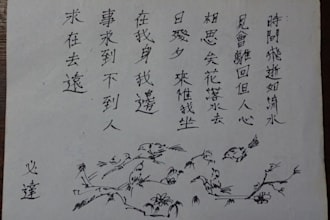 時間飛逝如流水
見會離回但人心
相思矣花落水去
日夕來惟我坐
在我身我邊
事求到不到人
求在去遠
必達